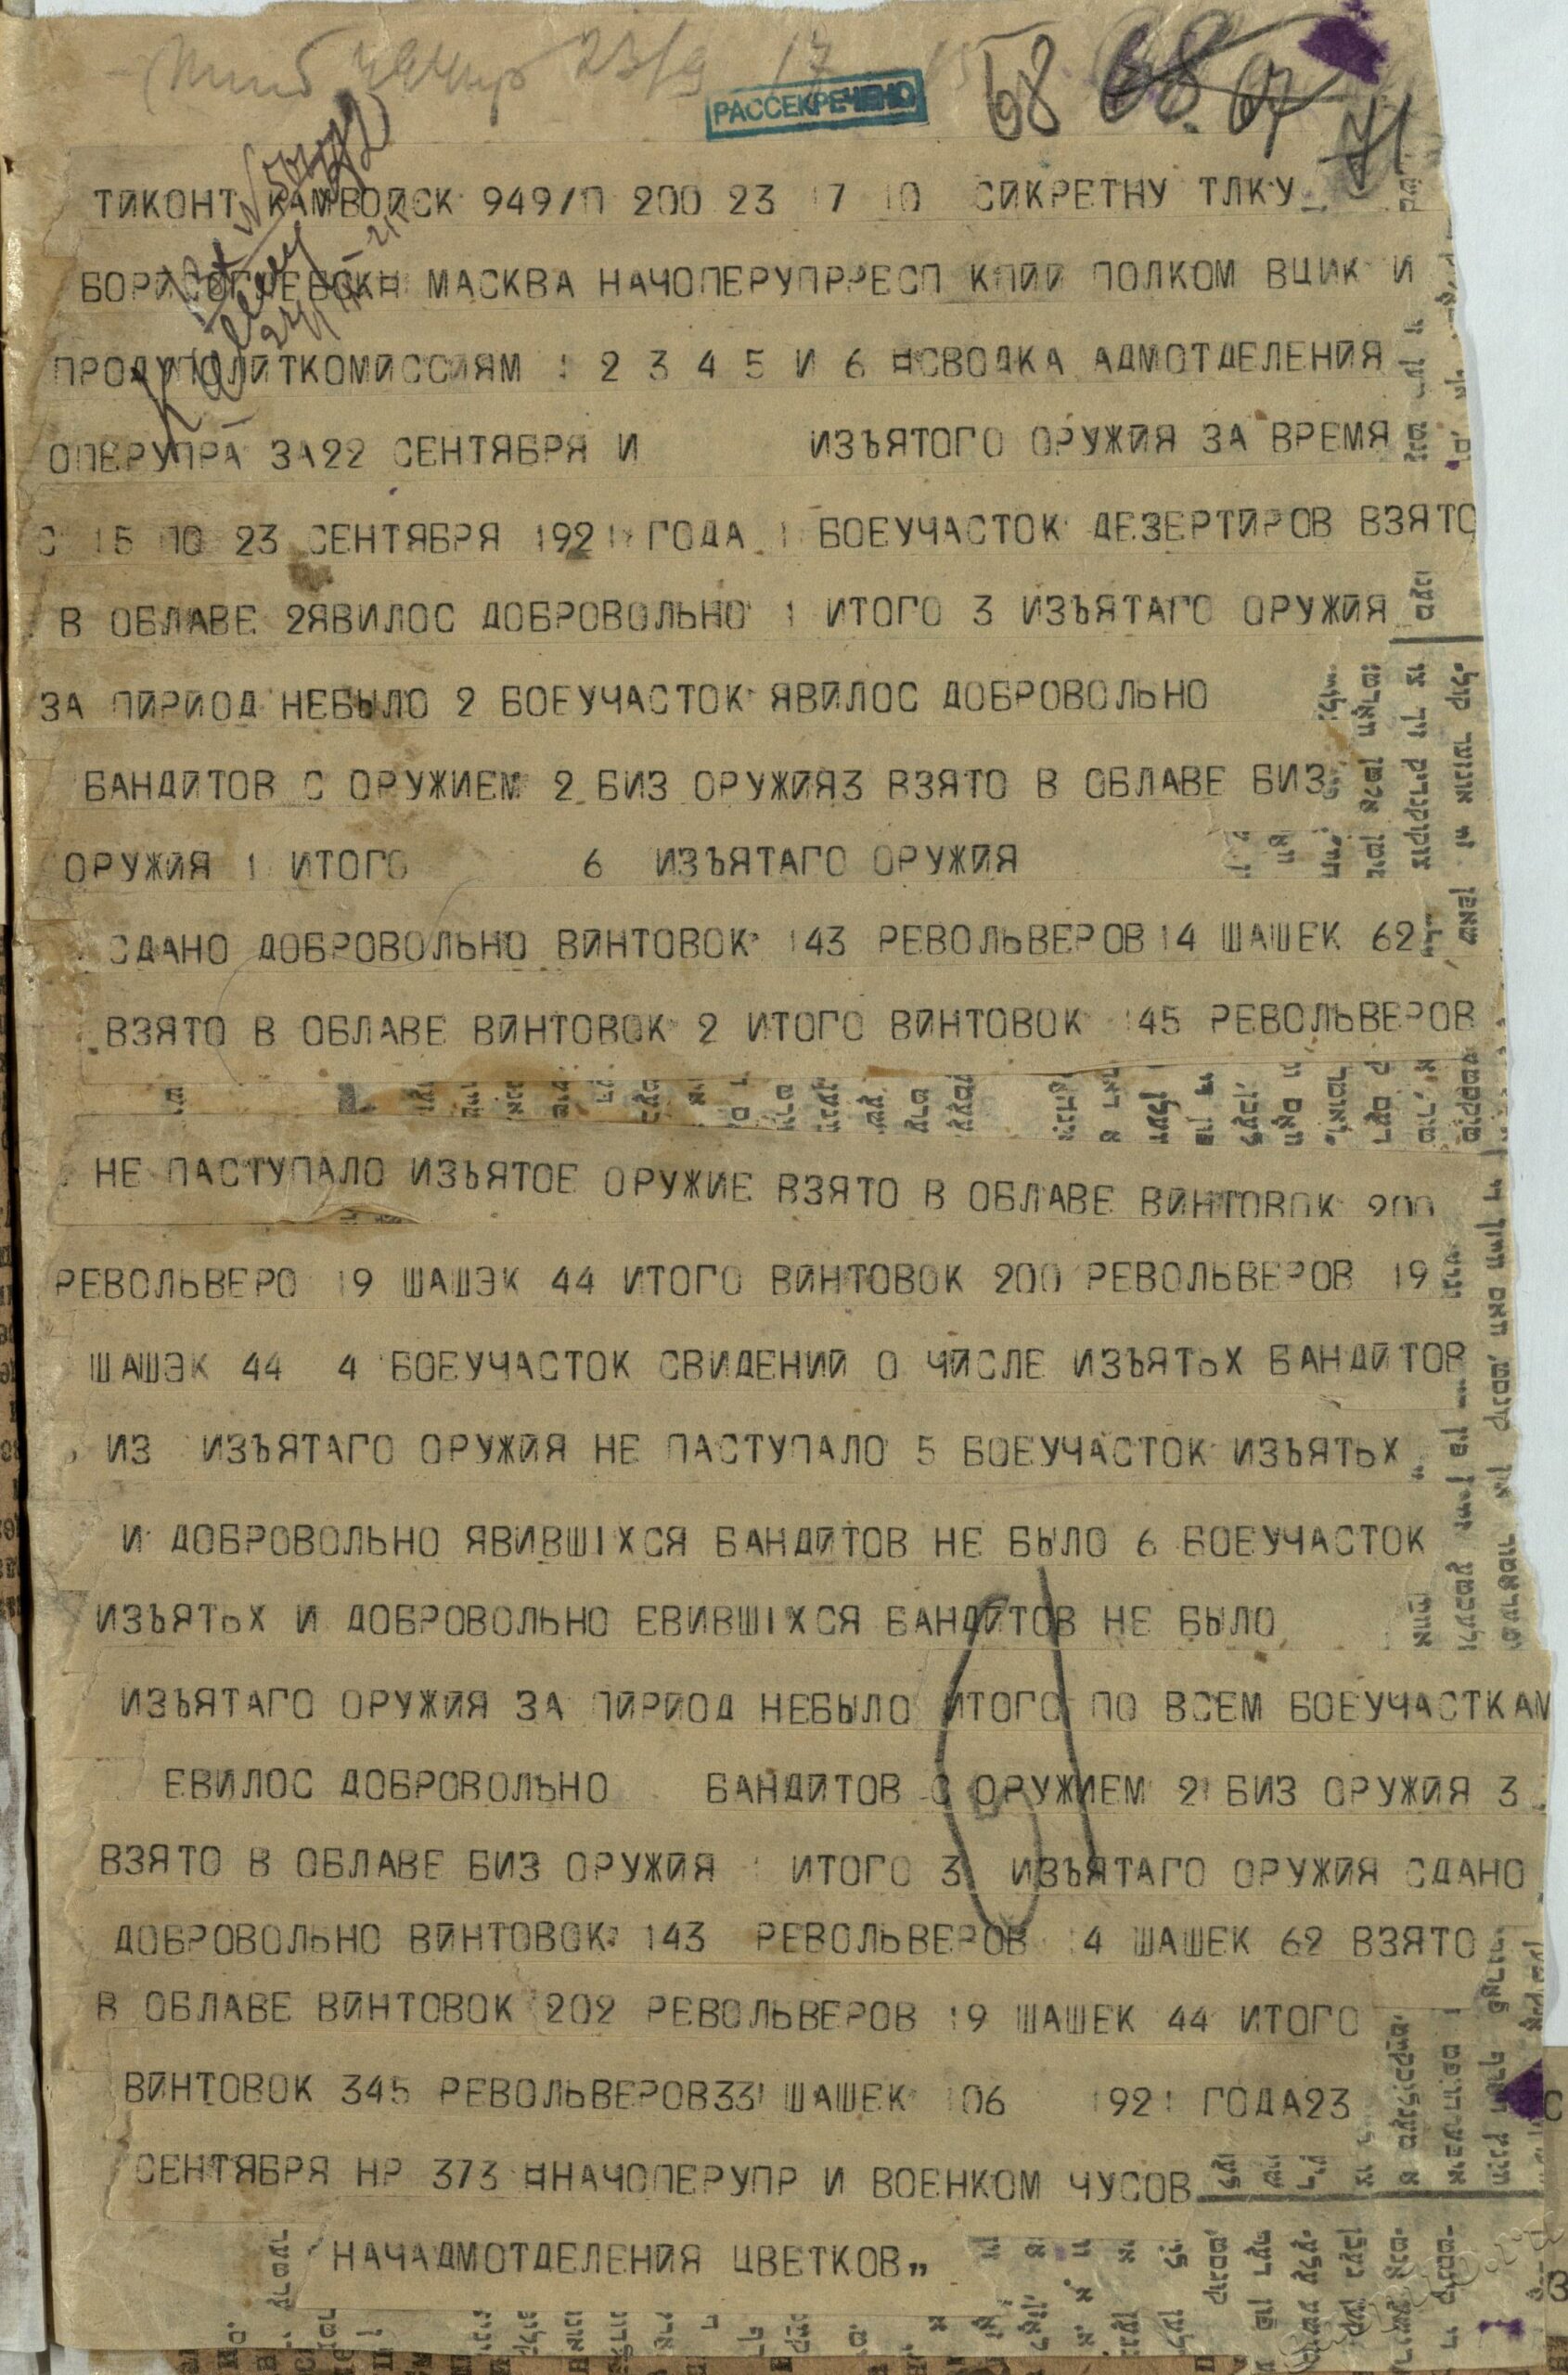 РАССЕКРЕЧЕНО
68 67
71
ТИКОНТ КАМВОЙСК 949/П 200 23 17 10 СИКРЕТНУ ТЛКУ
МАСКВА НАЧОПЕРУПРРЕСП КПИЙ ПОЛКОМ ВЦИК И
ПРОДУПОЛИТКОМИССИЯМ 1 2 3 4 5 И 6 СВОДКА АДМОТДЕЛЕНИЯ
ОПЕРУПРА ЗА22 СЕНТЯБРЯ И ИЗЪЯТОГО ОРУЖИЯ ЗА ВРЕМЯ
С 15 ПО 23 СЕНТЯБРЯ 1921 ГОДА 1 БОЕУЧАСТОК ДЕЗЕРТИРОВ ВЗЯТО
В ОБЛАВЕ 2ЯВИЛОС ДОБРОВОЛЬНО 1 ИТОГО 3 ИЗЪЯТАГО ОРУЖИЯ
ЗА ПИРИОД НЕБЫЛО 2 БОЕУЧАСТОК ЯВИЛОС ДОБРОВОЛЬНО
БАНДИТОВ С ОРУЖИЕМ 2 БИЗ ОРУЖИЯ3 ВЗЯТО В ОБЛАВЕ БИЗ
ОРУЖИЯ 1 ИТОГО 6 ИЗЪЯТАГО ОРУЖИЯ
СДАНО ДОБРОВОЛЬНО ВИНТОВОК 143 РЕВОЛЬВЕРОВ14 ШАШЕК 62
ВЗЯТО В ОБЛАВЕ ВИНТОВОК 2 ИТОГО ВИНТОВОК 145 РЕВОЛЬВЕРОВ
НЕ ПАСТУПАЛО ИЗЪЯТОЕ ОРУЖИЕ ВЗЯТО В ОБЛАВЕ ВИНТОВОК 200
РЕВОЛЬВЕРО 19 ШАШЭК 44 ИТОГО ВИНТОВОК 200 РЕВОЛЬВЕРОВ 19
ШАШЭК 44 4 БОЕУЧАСТОК СВИДЕНИЙ О ЧИСЛЕ ИЗЪЯТЬХ БАНДИТОВ
ИЗ ИЗЪЯТАГО ОРУЖИЯ НЕ ПАСТУПАЛО 5 БОЕУЧАСТОК ИЗЪЯТЬХ
И ДОБРОВОЛЬНО ЯВИВШIХСЯ БАНДИТОВ НЕ БЫЛО 6 БОЕУЧАСТОК
ИЗЪЯТЬХ И ДОБРОВОЛЬНО ЕВИВШIХСЯ БАНДИТОВ НЕ БЫЛО
ИЗЪЯТАГО ОРУЖИЯ ЗА ПИРИОД НЕБЫЛО ИТОГО ПО ВСЕМ БОЕУЧАСТКАМ
ЕВИЛОС ДОБРОВОЛЬНО БАНДИТОВ С ОРУЖИЕМ 2 БИЗ ОРУЖИЯ 3
ВЗЯТО В ОБЛАВЕ БИЗ ОРУЖИЯ 1 ИТОГО 3 ИЗЪЯТАГО ОРУЖИЯ СДАНО
ДОБРОВОЛЬНО ВИНТОВОК 143 РЕВОЛЬВЕРОВ 14 ШАШЕК 62 ВЗЯТО
В ОБЛАВЕ ВИНТОВОК 202 РЕВОЛЬВЕРОВ 19 ШАШЕК 44 ИТОГО
ВИНТОВОК 345 РЕВОЛЬВЕРОВ33 ШАШЕК 106 1921 ГОДА23
СЕНТЯБРЯ НР 373 НАЧОПЕРУПР И ВОЕНКОМ ЧУСОВ
НАЧАДМОТДЕЛЕНИЯ ЦВЕТКОВ„